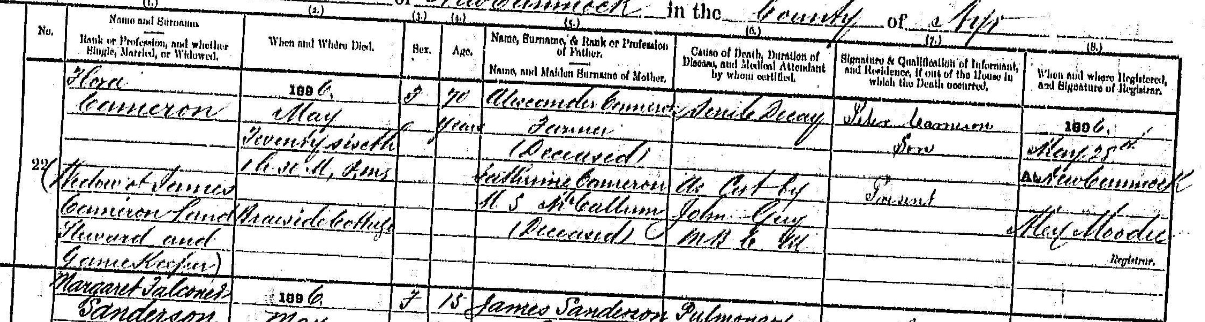 of New Cumnock in the County of Ayr
(1.) (2.) (3.) (4.) (5.) (6.) (7.) (8.)
No.
Name and Surname.
Rank or Profession, and whether
Single, Married, or Widowed.
When and Where Died.
Sex.
Age.
Name, Surname, & Rank or Profession
of Father.
Name, and Maiden Surname of Mother.
Cause of Death, Duration of
Disease, and Medical Attendant
by whom certified.
Signature & Qualification of Informant,
and Residence, if out of the House in
which the Death occurred.
When and where Registered,
and Signature of Registrar.
22
Flora
Cameron
(Widow of James
Cameron Land
Steward and
Gamekeeper)
1896.
May
Twenty sixth
M,
Braeside Cottage
F
70
years
Alexander Cameron
Farmer
(Deceased)
Catherine Cameron
M.S. McCallum
(Deceased)
Senile Decay
As Cert by
John
Peter Cameron
Son
Present
1896.
May 28th
At New Cumnock
Alex Moodie
Registrar.
Margaret Falconer
Sanderson
1896.
May
F
15
James Sanderson
Pulmonary